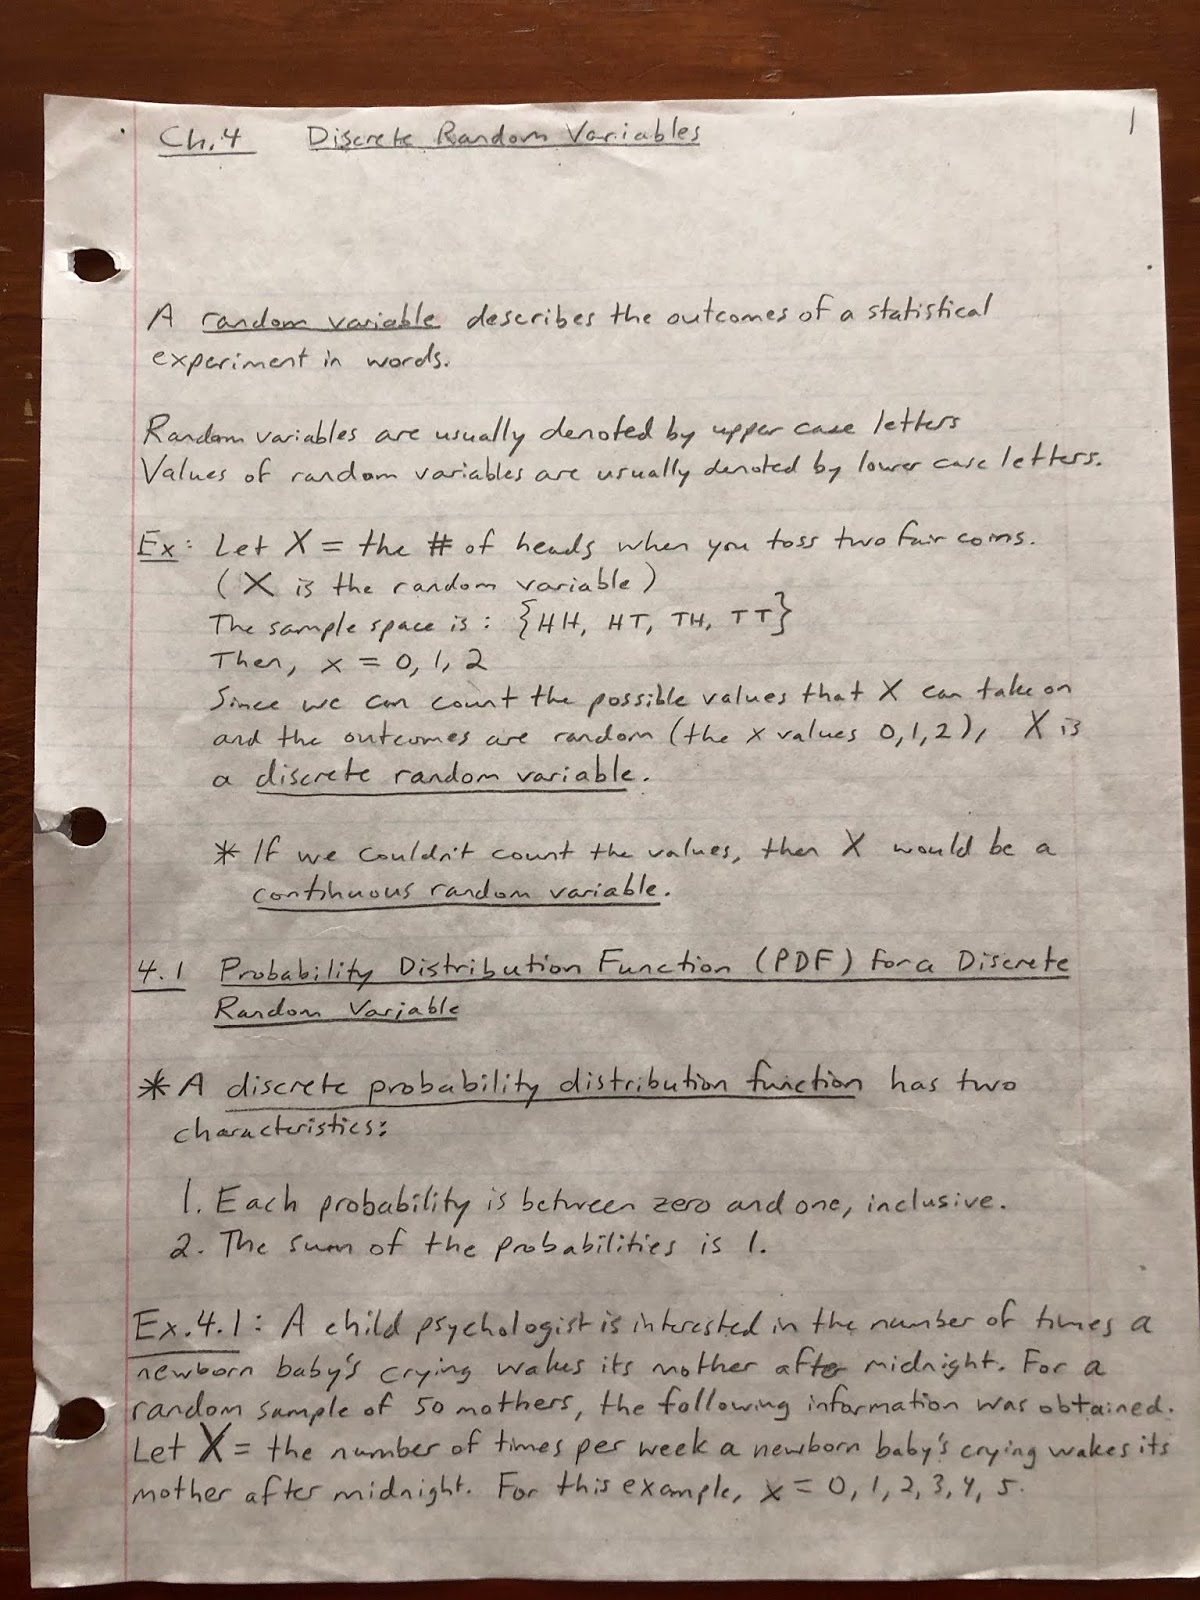 1
Ch. 4 Discrete Random Variables
A random variable describes the outcomes of a statistical
experiment in words.
Random variables are usually denoted by upper case letters
Values of random variables are usually denoted by lower case letters.
Ex: Let X = the # of heads when you toss two fair coins.
(X is the random variable)
The sample space is: {HH, HT, TH, TT}
Then, x = 0, 1, 2
Since we can count the possible values that X can take on
and the outcomes are random (the x values 0, 1, 2), X is
a discrete random variable.
* If we couldn't count the values, then X would be a
continuous random variable.
4.1 Probability Distribution Function (PDF) for a Discrete
Random Variable
* A discrete probability distribution function has two
characteristics:
1. Each probability is between zero and one, inclusive.
2. The sum of the probabilities is 1.
Ex. 4.1: A child psychologist is interested in the number of times a
newborn baby's crying wakes its mother after midnight. For a
random sample of 50 mothers, the following information was obtained.
Let X = the number of times per week a newborn baby's crying wakes its
mother after midnight. For this example, x = 0, 1, 2, 3, 4, 5.